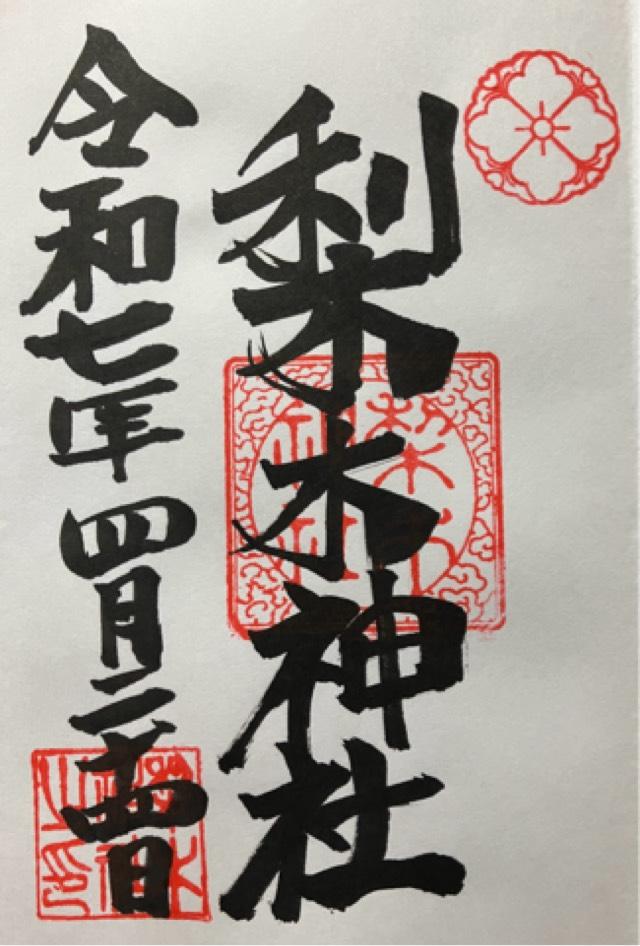 梨木神社
令和七年四月二十四日